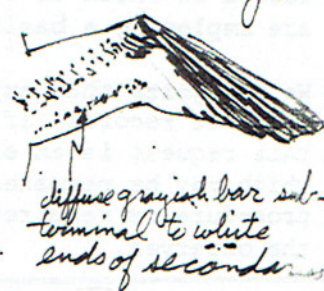 diffuse grayish bar sub-
terminal to white
ends of secondaries